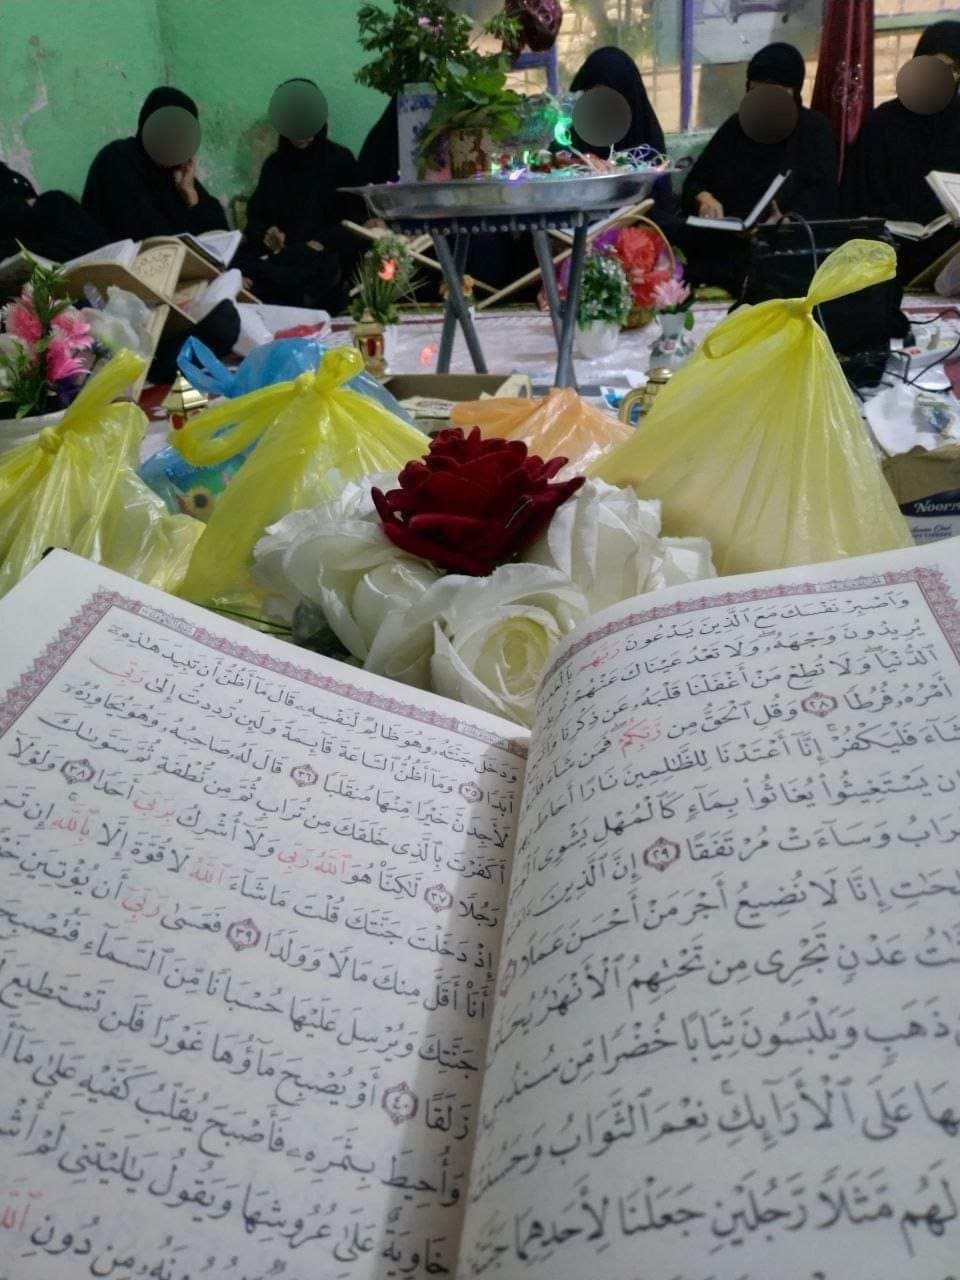 وَاصْبِرْ نَفْسَكَ مَعَ الَّذِينَ يَدْعُونَ رَبَّهُم
يُرِيدُونَ وَجْهَهُ وَلَا تَعْدُ عَيْنَاكَ عَنْهُمْ تُرِيدُ
الدُّنْيَا وَلَا تُطِعْ مَنْ أَغْفَلْنَا قَلْبَهُ عَن ذِكْرِنَا
أَمْرُهُ فُرُطًا ٢٨ وَقُلِ الْحَقُّ مِن رَّبِّكُمْ فَمَن شَاءَ
شَاءَ فَلْيَكْفُرْ إِنَّا أَعْتَدْنَا لِلظَّالِمِينَ نَارًا أَحَاطَ
يَسْتَغِيثُوا يُغَاثُوا بِمَاءٍ كَالْمُهْلِ يَشْوِي
وَسَاءَتْ مُرْتَفَقًا ٢٩ إِنَّ الَّذِينَ
إِنَّا لَا نُضِيعُ أَجْرَ مَنْ أَحْسَنَ عَمَلًا
عَدْنٍ تَجْرِي مِن تَحْتِهِمُ الْأَنْهَارُ
ذَهَبٍ وَيَلْبَسُونَ ثِيَابًا خُضْرًا مِّن سُندُسٍ
عَلَى الْأَرَائِكِ نِعْمَ الثَّوَابُ وَحَسُنَتْ
لَهُم مَّثَلًا رَّجُلَيْنِ جَعَلْنَا لِأَحَدِهِمَا
وَدَخَلَ جَنَّتَهُ وَهُوَ ظَالِمٌ لِّنَفْسِهِ قَالَ مَا أَظُنُّ أَن تَبِيدَ هَذِهِ
أَبَدًا ٣٥ وَمَا أَظُنُّ السَّاعَةَ قَائِمَةً وَلَئِن رُّدِدتُّ إِلَى رَبِّي
لَأَجِدَنَّ خَيْرًا مِّنْهَا مُنقَلَبًا ٣٦ قَالَ لَهُ صَاحِبُهُ وَهُوَ يُحَاوِرُهُ
أَكَفَرْتَ بِالَّذِي خَلَقَكَ مِن تُرَابٍ ثُمَّ مِن نُّطْفَةٍ ثُمَّ سَوَّاكَ
رَجُلًا ٣٧ لَّكِنَّا هُوَ اللَّهُ رَبِّي وَلَا أُشْرِكُ بِرَبِّي أَحَدًا ٣٨ وَلَوْلَا
إِذْ دَخَلْتَ جَنَّتَكَ قُلْتَ مَا شَاءَ اللَّهُ لَا قُوَّةَ إِلَّا بِاللَّهِ إِن
أَنَا أَقَلَّ مِنكَ مَالًا وَوَلَدًا ٣٩ فَعَسَى رَبِّي أَن يُؤْتِيَنِ
جَنَّتِكَ وَيُرْسِلَ عَلَيْهَا حُسْبَانًا مِّنَ السَّمَاءِ فَتُصْبِحَ
زَلَقًا ٤٠ أَوْ يُصْبِحَ مَاؤُهَا غَوْرًا فَلَن تَسْتَطِيعَ
وَأُحِيطَ بِثَمَرِهِ فَأَصْبَحَ يُقَلِّبُ كَفَّيْهِ عَلَى مَا
خَاوِيَةٌ عَلَى عُرُوشِهَا وَيَقُولُ يَا لَيْتَنِي لَمْ
مِن دُونِ اللَّهِ